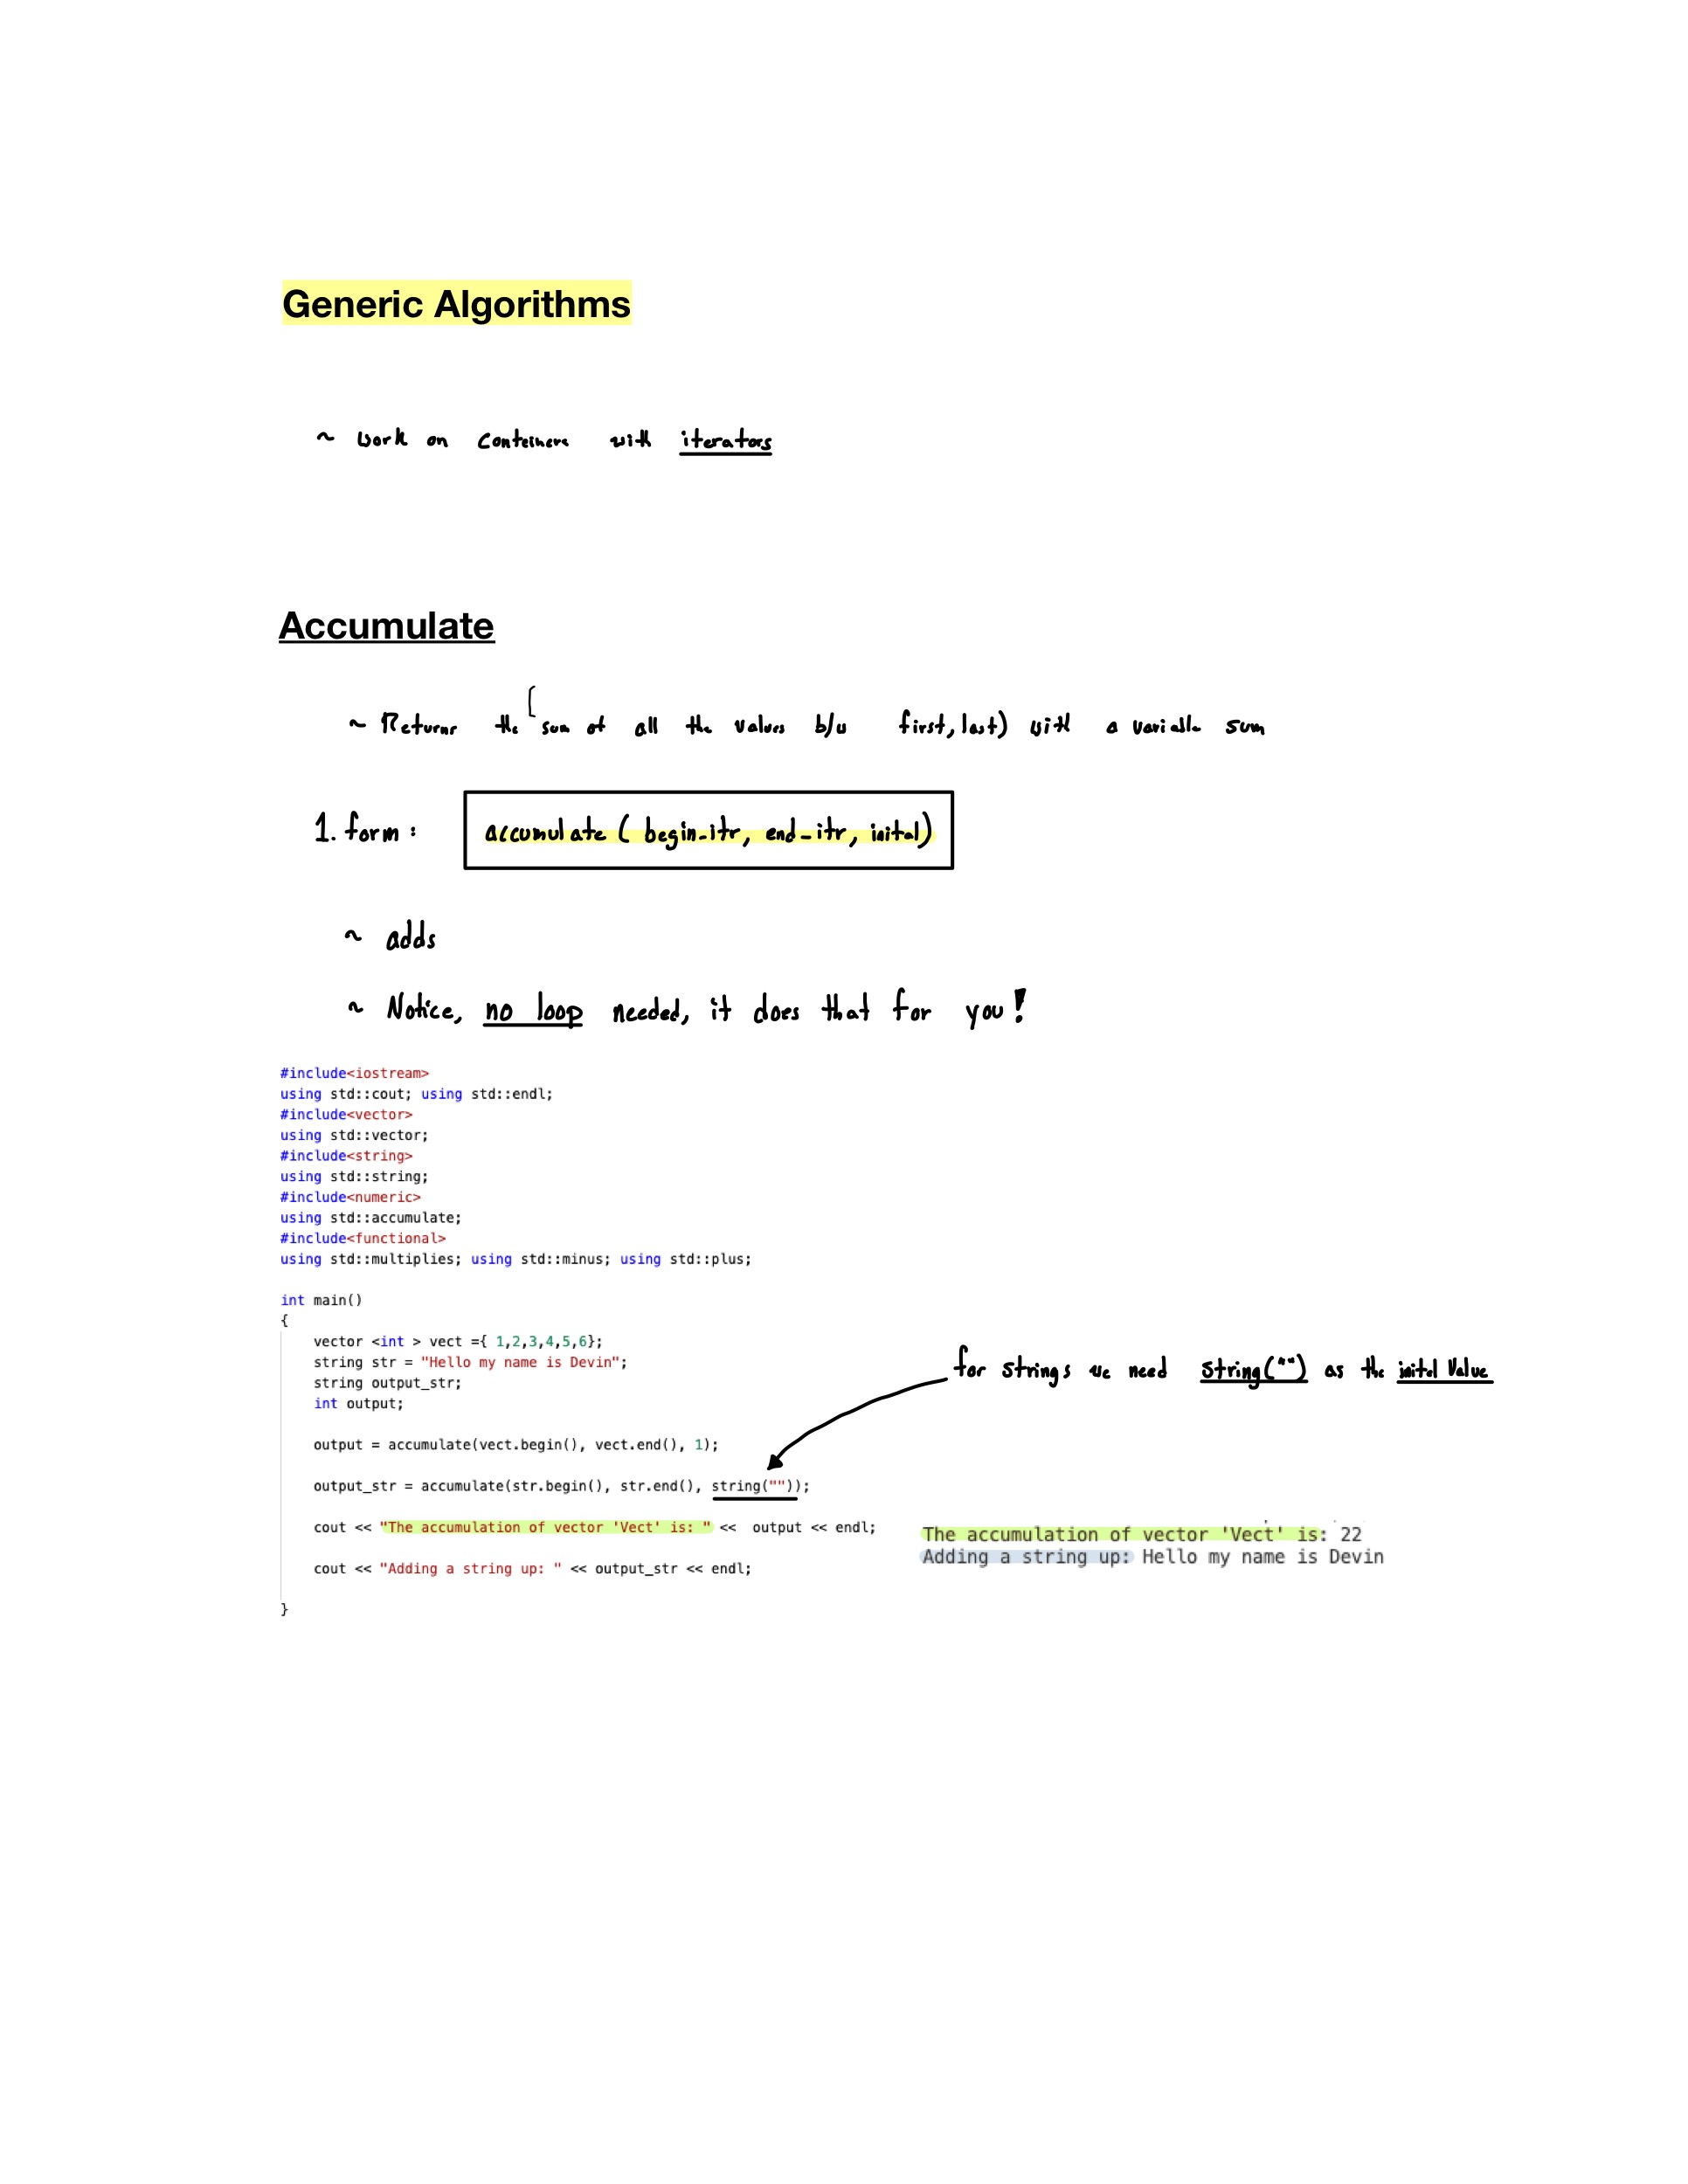 Generic Algorithms
~ Work on Containers with iterators
Accumulate
~ Returns the [sum of all the values b/w first, last) with a variable sum
1. form: accumulate ( begin-itr, end-itr, inital)
~ adds
~ Notice, no loop needed, it does that for you!
#include<iostream>
using std::cout; using std::endl;
#include<vector>
using std::vector;
#include<string>
using std::string;
#include<numeric>
using std::accumulate;
#include<functional>
using std::multiplies; using std::minus; using std::plus;
int main()
{
vector <int > vect ={ 1,2,3,4,5,6};
string str = "Hello my name is Devin";
string output_str;
int output;
for strings we need string("") as the inital Value
output = accumulate(vect.begin(), vect.end(), 1);
output_str = accumulate(str.begin(), str.end(), string(""));
cout << "The accumulation of vector 'Vect' is: " << output << endl;
cout << "Adding a string up: " << output_str << endl;
}
The accumulation of vector 'Vect' is: 22
Adding a string up: Hello my name is Devin